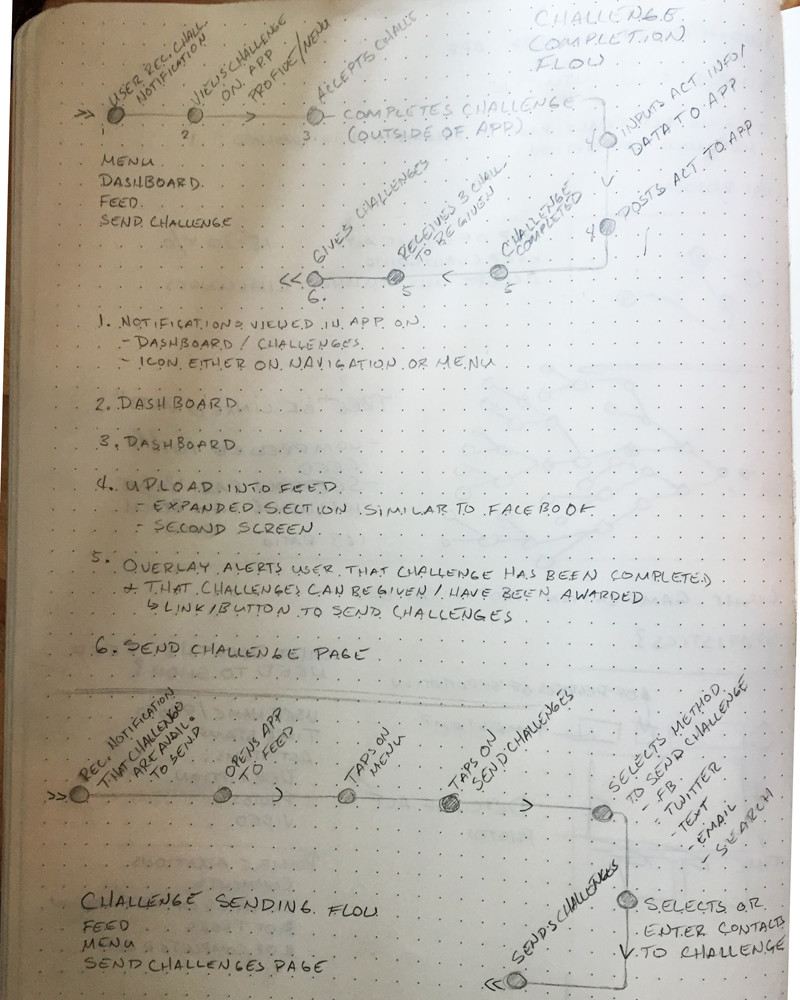 CHALLENGE
COMPLETION
FLOW
>> USER REC. CHALL.
NOTIFICATION
1
VIEWS CHALLENGE
ON APP
PROFIDE/MENU
2.
ACCEPTS CHALL
3.
COMPLETES CHALLENGE
(OUTSIDE OF APP)
4
INPUTS ACT INFO/
DATA TO APP
4
POSTS ACT TO APP
CHALLENGE
COMPLETED
5
RECEIVES 3 CHALL
TO BE GIVEN
5
GIVES CHALLENGES
6.
MENU
DASHBOARD.
FEED.
SEND CHALLENGE
1. NOTIFICATIONS VIEWED IN APP ON.
- DASHBOARD / CHALLENGES.
- ICON EITHER ON NAVIGATION OR MENU
2. DASHBOARD.
3. DASHBOARD.
4. UPLOAD INTO FEED.
- EXPANDED SECTION SIMILAR TO FACEBOOK
- SECOND SCREEN.
5. OVERLAY ALERTS USER THAT CHALLENGE HAS BEEN COMPLETED
+ THAT CHALLENGES CAN BE GIVEN / HAVE BEEN AWARDED
↳ LINK/BUTTON TO SEND CHALLENGES
6. SEND CHALLENGE PAGE
>> REC. NOTIFICATION
THAT CHALLENGE
ARE AVAIL.
TO SEND
OPENS APP
TO FEED
TAPS ON
MENU
TAPS ON
SEND CHALLENGES
SELECTS METHOD
TO SEND CHALLENGE
- FB.
- TWITTER
- TEXT
- EMAIL
- SEARCH
SELECTS OR
ENTER CONTACTS
TO CHALLENGE
SENDS CHALLENGES
CHALLENGE SENDING FLOW
FEED
MENU
SEND CHALLENGES PAGE